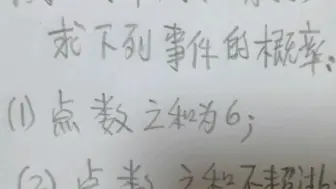 求下列事件的概率:
(1) 点数之和为6;
(2) 点数之和不超过6